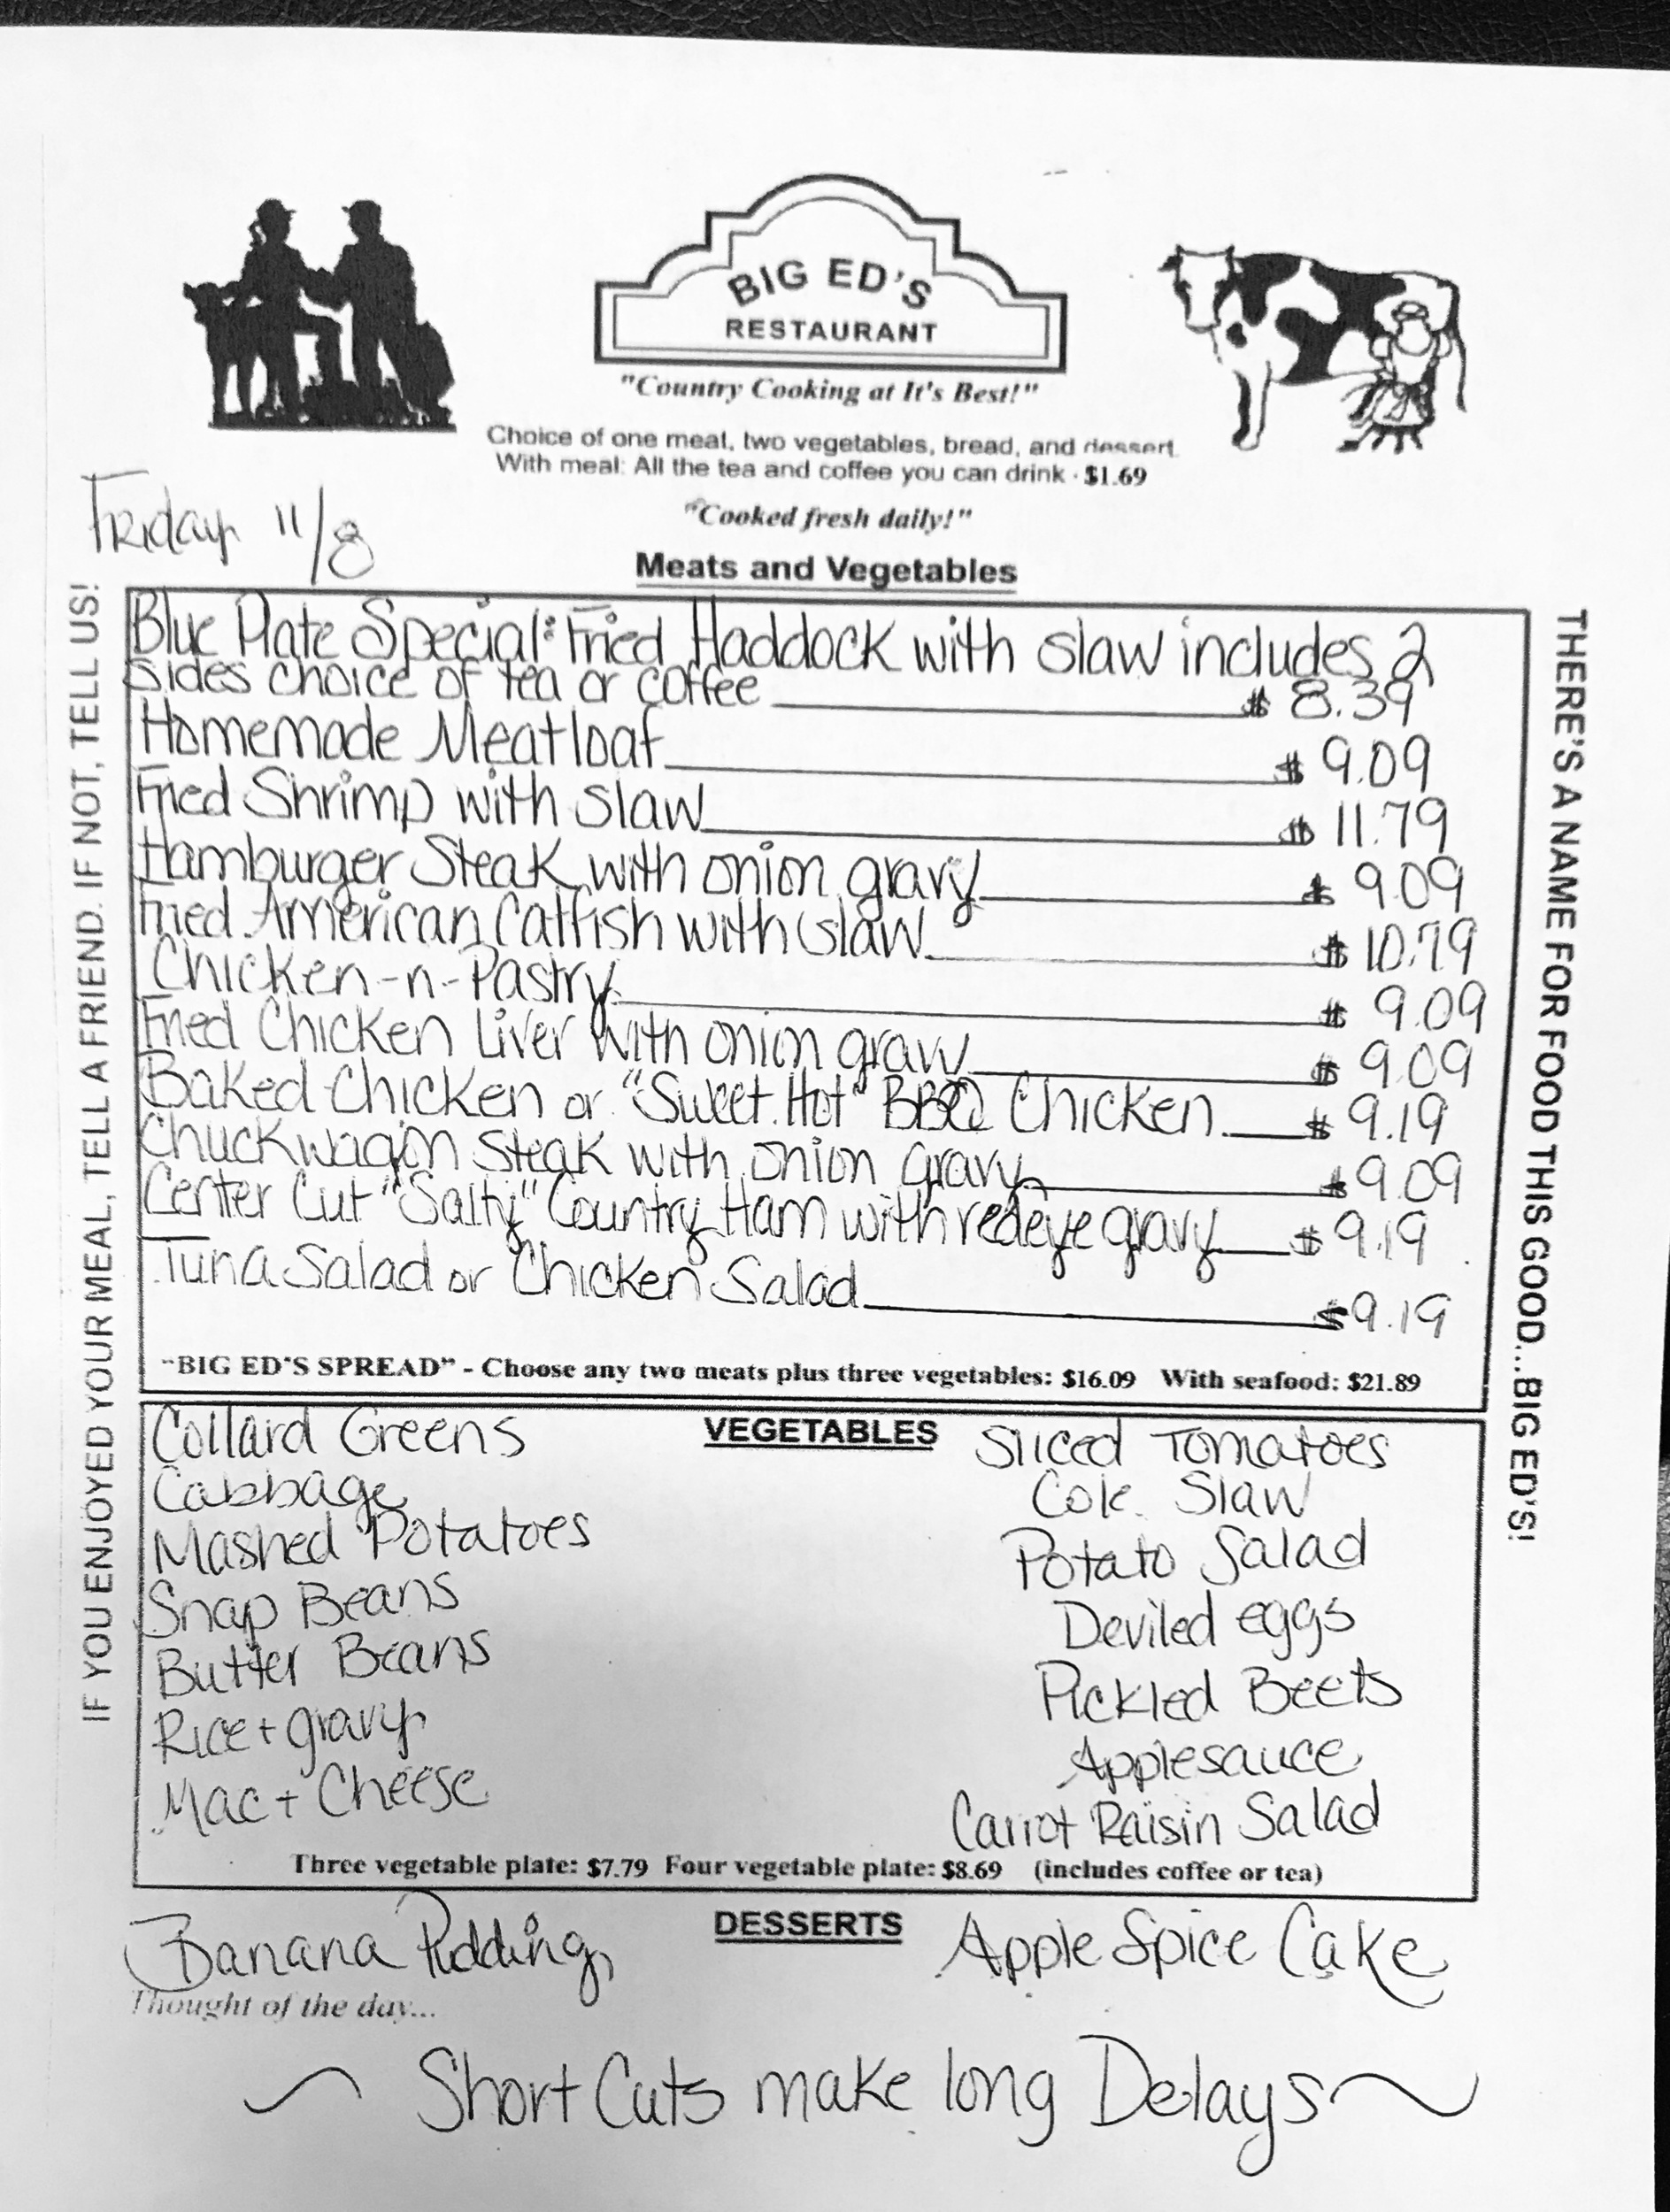 BIG ED'S
RESTAURANT
"Country Cooking at It's Best!"
Choice of one meat, two vegetables, bread, and dessert
With meal: All the tea and coffee you can drink · $1.69
"Cooked fresh daily!"
Friday 11/8
Meats and Vegetables
IF YOU ENJOYED YOUR MEAL, TELL A FRIEND. IF NOT, TELL US!
Blue Plate Special: Fried Haddock with slaw includes 2
sides choice of tea or coffee $ 8.39
Homemade Meatloaf $ 9.09
Fried Shrimp with slaw $ 11.79
Hamburger Steak with onion gravy $ 9.09
Fried American Catfish with slaw $ 10.79
Chicken-n-Pastry $ 9.09
Fried Chicken Liver with onion gravy $ 9.09
Baked Chicken or "Sweet Hot" BBQ Chicken $ 9.19
Chuckwagon Steak with onion gravy $ 9.09
Center Cut "Salty" Country Ham with redeye gravy $ 9.19
Tuna Salad or Chicken Salad $ 9.19
"BIG ED'S SPREAD" - Choose any two meats plus three vegetables: $16.09 With seafood: $21.89
THERE'S A NAME FOR FOOD THIS GOOD...BIG ED'S!
VEGETABLES
Collard Greens
Cabbage
Mashed Potatoes
Snap Beans
Butter Beans
Rice + gravy
Mac + Cheese
Sliced Tomatoes
Cole Slaw
Potato Salad
Deviled eggs
Pickled Beets
Applesauce
Carrot Raisin Salad
Three vegetable plate: $7.79 Four vegetable plate: $8.69 (includes coffee or tea)
DESSERTS
Banana Pudding
Apple Spice Cake
Thought of the day...
~ Short Cuts make long Delays ~